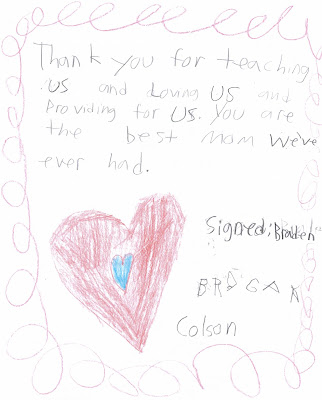 Thank you for teaching
us and loving us and
Providing for us. You are
the best mom We've
ever had.
Signed: Braden
BROGAN
Colson